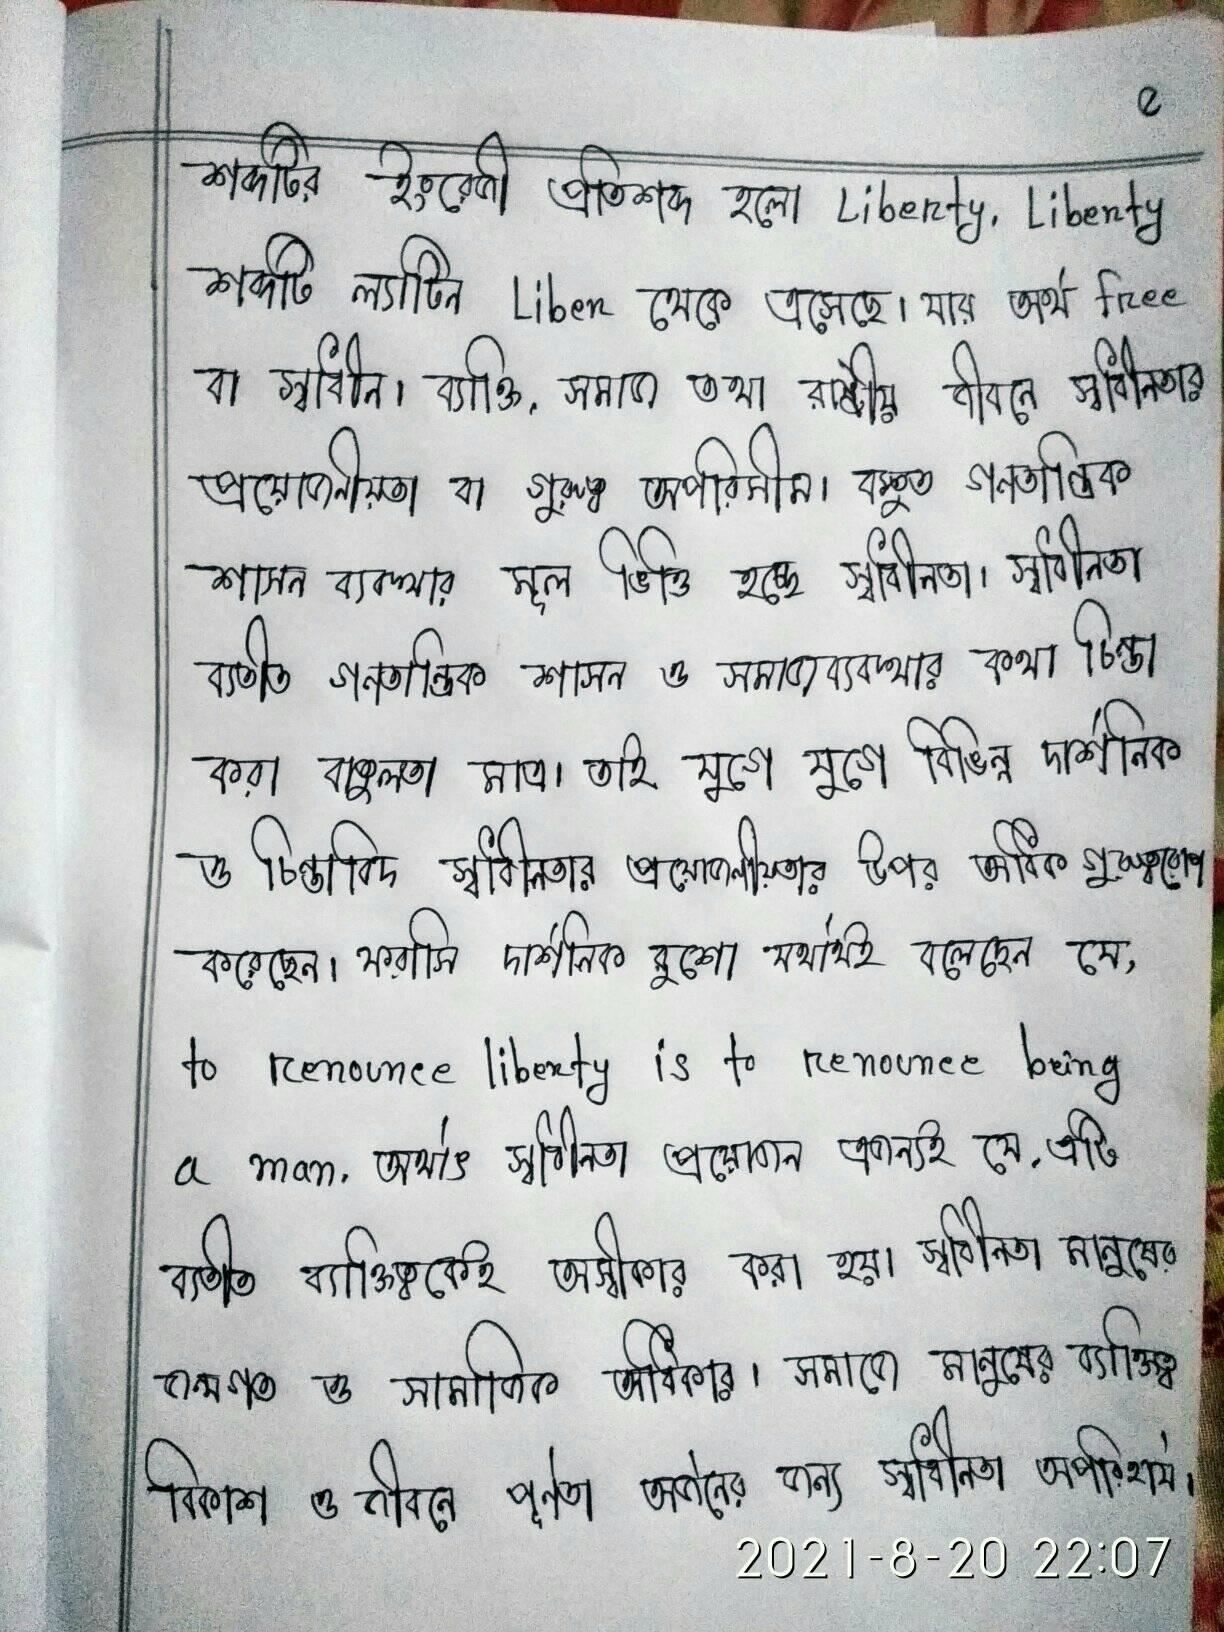 ৫
শব্দটির ইংরেজী প্রতিশব্দ হলো Liberty. Liberty
শব্দটি ল্যাটিন Liber থেকে এসেছে। যার অর্থ free
বা স্বাধীন। ব্যাক্তি, সমাজ তথা রাষ্ট্রীয় জীবনে স্বাধীনতার
প্রয়োজনীয়তা বা গুরুত্ব অপরিসীম। বস্তুত গনতান্ত্রিক
শাসন ব্যবস্থার মূল ভিত্তি হচ্ছে স্বাধীনতা। স্বাধীনতা
ব্যতীত গনতান্ত্রিক শাসন ও সমাজব্যবস্থার কথা চিন্তা
করা বাতুলতা মাত্র। তাই যুগে যুগে বিভিন্ন দার্শনিক
ও চিন্তাবিদ স্বাধীনতার প্রয়োজনীয়তার উপর অধিক গুরুত্বরোপ
করেছেন। ফরাসি দার্শনিক রুশো যথার্থই বলেছেন যে,
to renounce liberty is to renounce being
a man. অর্থাৎ স্বাধীনতা প্রয়োজন এজন্যই যে, এটি
ব্যতীত ব্যাক্তিত্বকেই অস্বীকার করা হয়। স্বাধীনতা মানুষের
জন্মগত ও সামাজিক অধিকার। সমাজে মানুষের ব্যাক্তিত্ব
বিকাশ ও জীবনে পূর্নতা অর্জনের জন্য স্বাধীনতা অপরিহার্য।
2021-8-20 22:07